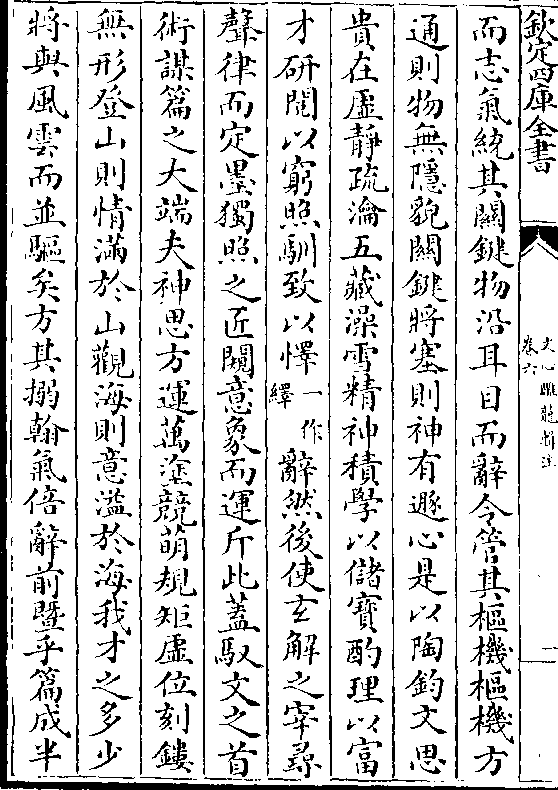 欽定四庫全書
文心雕龍輯注
卷六
一
而志氣統其關鍵物沿耳目而辭令管其樞機樞機方
通則物無隱貌關鍵將塞則神有遯心是以陶鈞文思
貴在虛靜疏瀹五藏澡雪精神積學以儲寶酌理以富
才研閱以窮照馴致以懌一作繹辭然後使玄解之宰尋
聲律而定墨獨照之匠闚意象而運斤此蓋馭文之首
術謀篇之大端夫神思方運萬塗競萌規矩虛位刻鏤
無形登山則情滿於山觀海則意溢於海我才之多少
將與風雲而並驅矣方其搦翰氣倍辭前暨乎篇成半